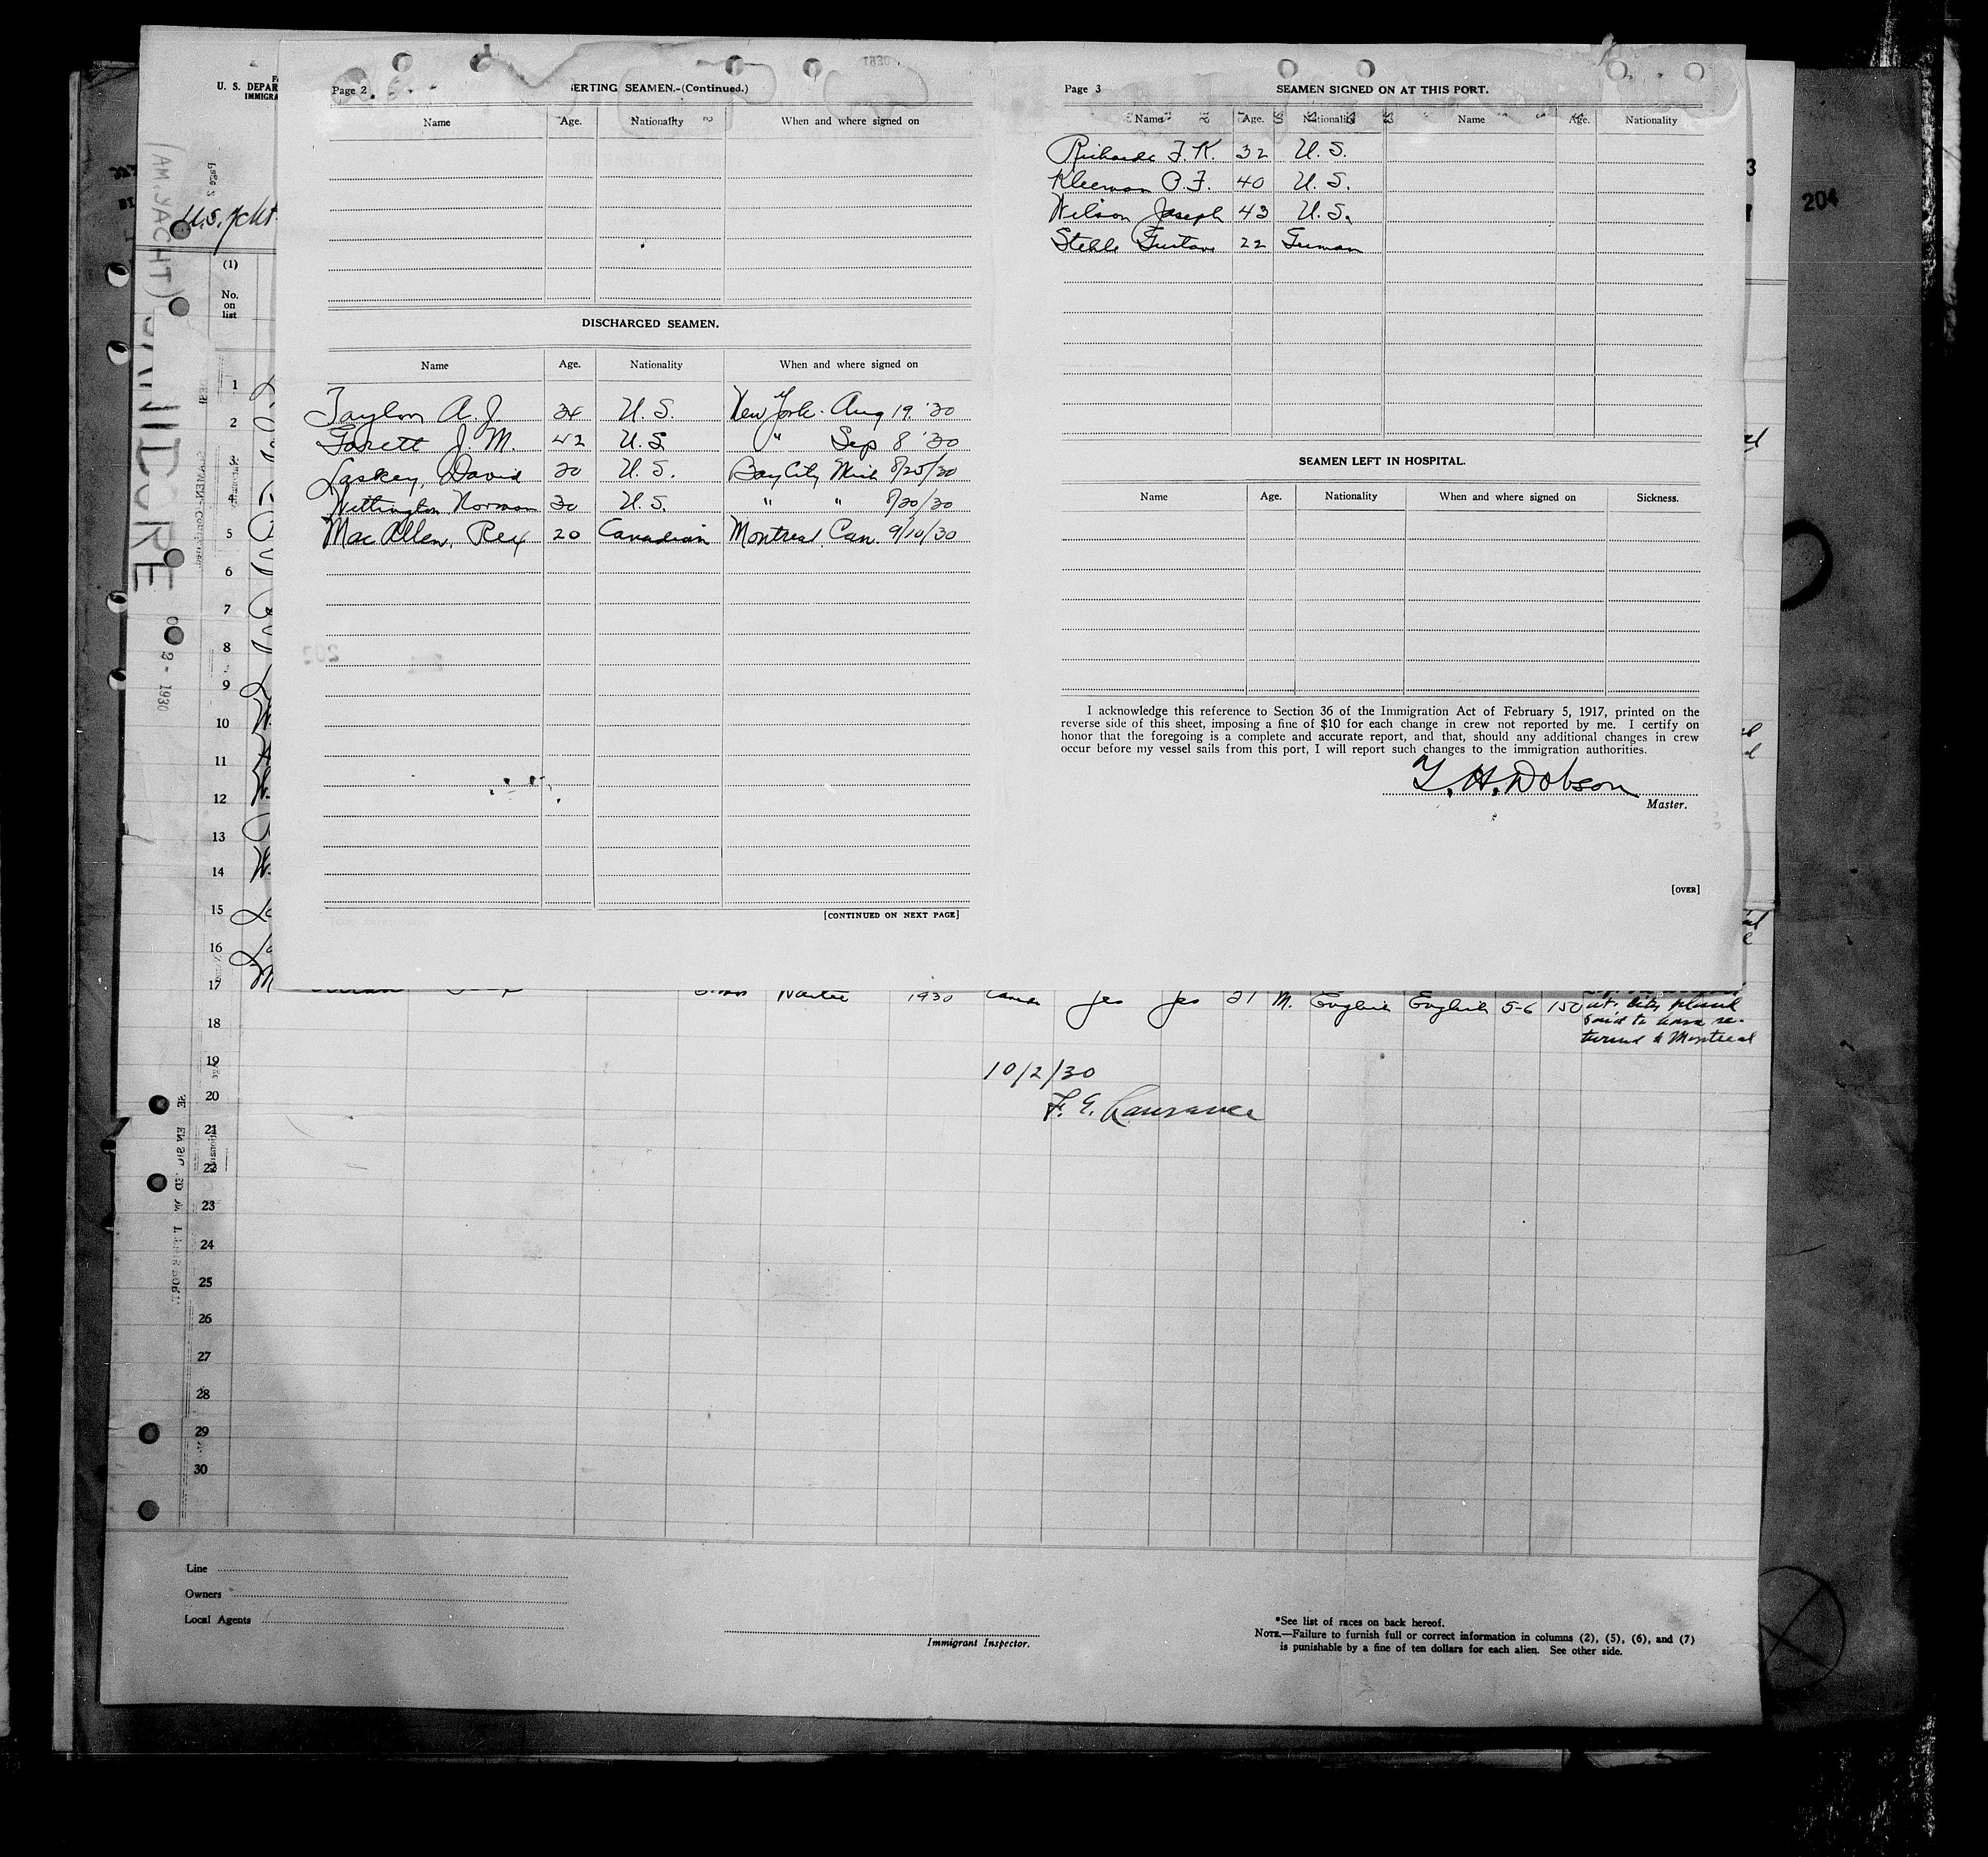 U. S. DEPAR
IMMIGRA
(AM. YACHT)
U.S. Ycht
204
(1)
No.
on
list
Page 2
ERTING SEAMEN.-(Continued.)
Name Age. Nationality When and where signed on
DISCHARGED SEAMEN.
Name Age. Nationality When and where signed on
Taylor A. J. 34 U.S. New York. Aug 19. '30
J. M. 42 U.S. " Sep 8 '30
Laskey, David 20 U.S. Bay City Mich 8/25/30
Wittington Norman 30 U.S. " " 8/30/30
Mac Allen, Rex 20 Canadian Montreal, Can. 9/10/30
[CONTINUED ON NEXT PAGE]
Page 3
SEAMEN SIGNED ON AT THIS PORT.
Name Age. Nationality Name Age. Nationality
Richards F. K. 32 U.S.
Kleeman O. F. 40 U.S.
Wilson Joseph 43 U.S.
Stehle Gustave 22 German
SEAMEN LEFT IN HOSPITAL.
Name Age. Nationality When and where signed on Sickness.
I acknowledge this reference to Section 36 of the Immigration Act of February 5, 1917, printed on the
reverse side of this sheet, imposing a fine of $10 for each change in crew not reported by me. I certify on
honor that the foregoing is a complete and accurate report, and that, should any additional changes in crew
occur before my vessel sails from this port, I will report such changes to the immigration authorities.
T. H. Dobson
Master.
[OVER]
1
2
3
4
5
6
7
8
9
10
11
12
13
14
15
16
17
1930 yes yes 21 M. English English 5-6 150
said to have re-
turned to Montreal
18
19
10/2/30
20
F. E.
21
22
23
24
25
26
27
28
29
30
Line
Owners
Local Agents
Immigrant Inspector.
*See list of races on back hereof.
NOTE.—Failure to furnish full or correct information in columns (2), (5), (6), and (7)
is punishable by a fine of ten dollars for each alien. See other side.